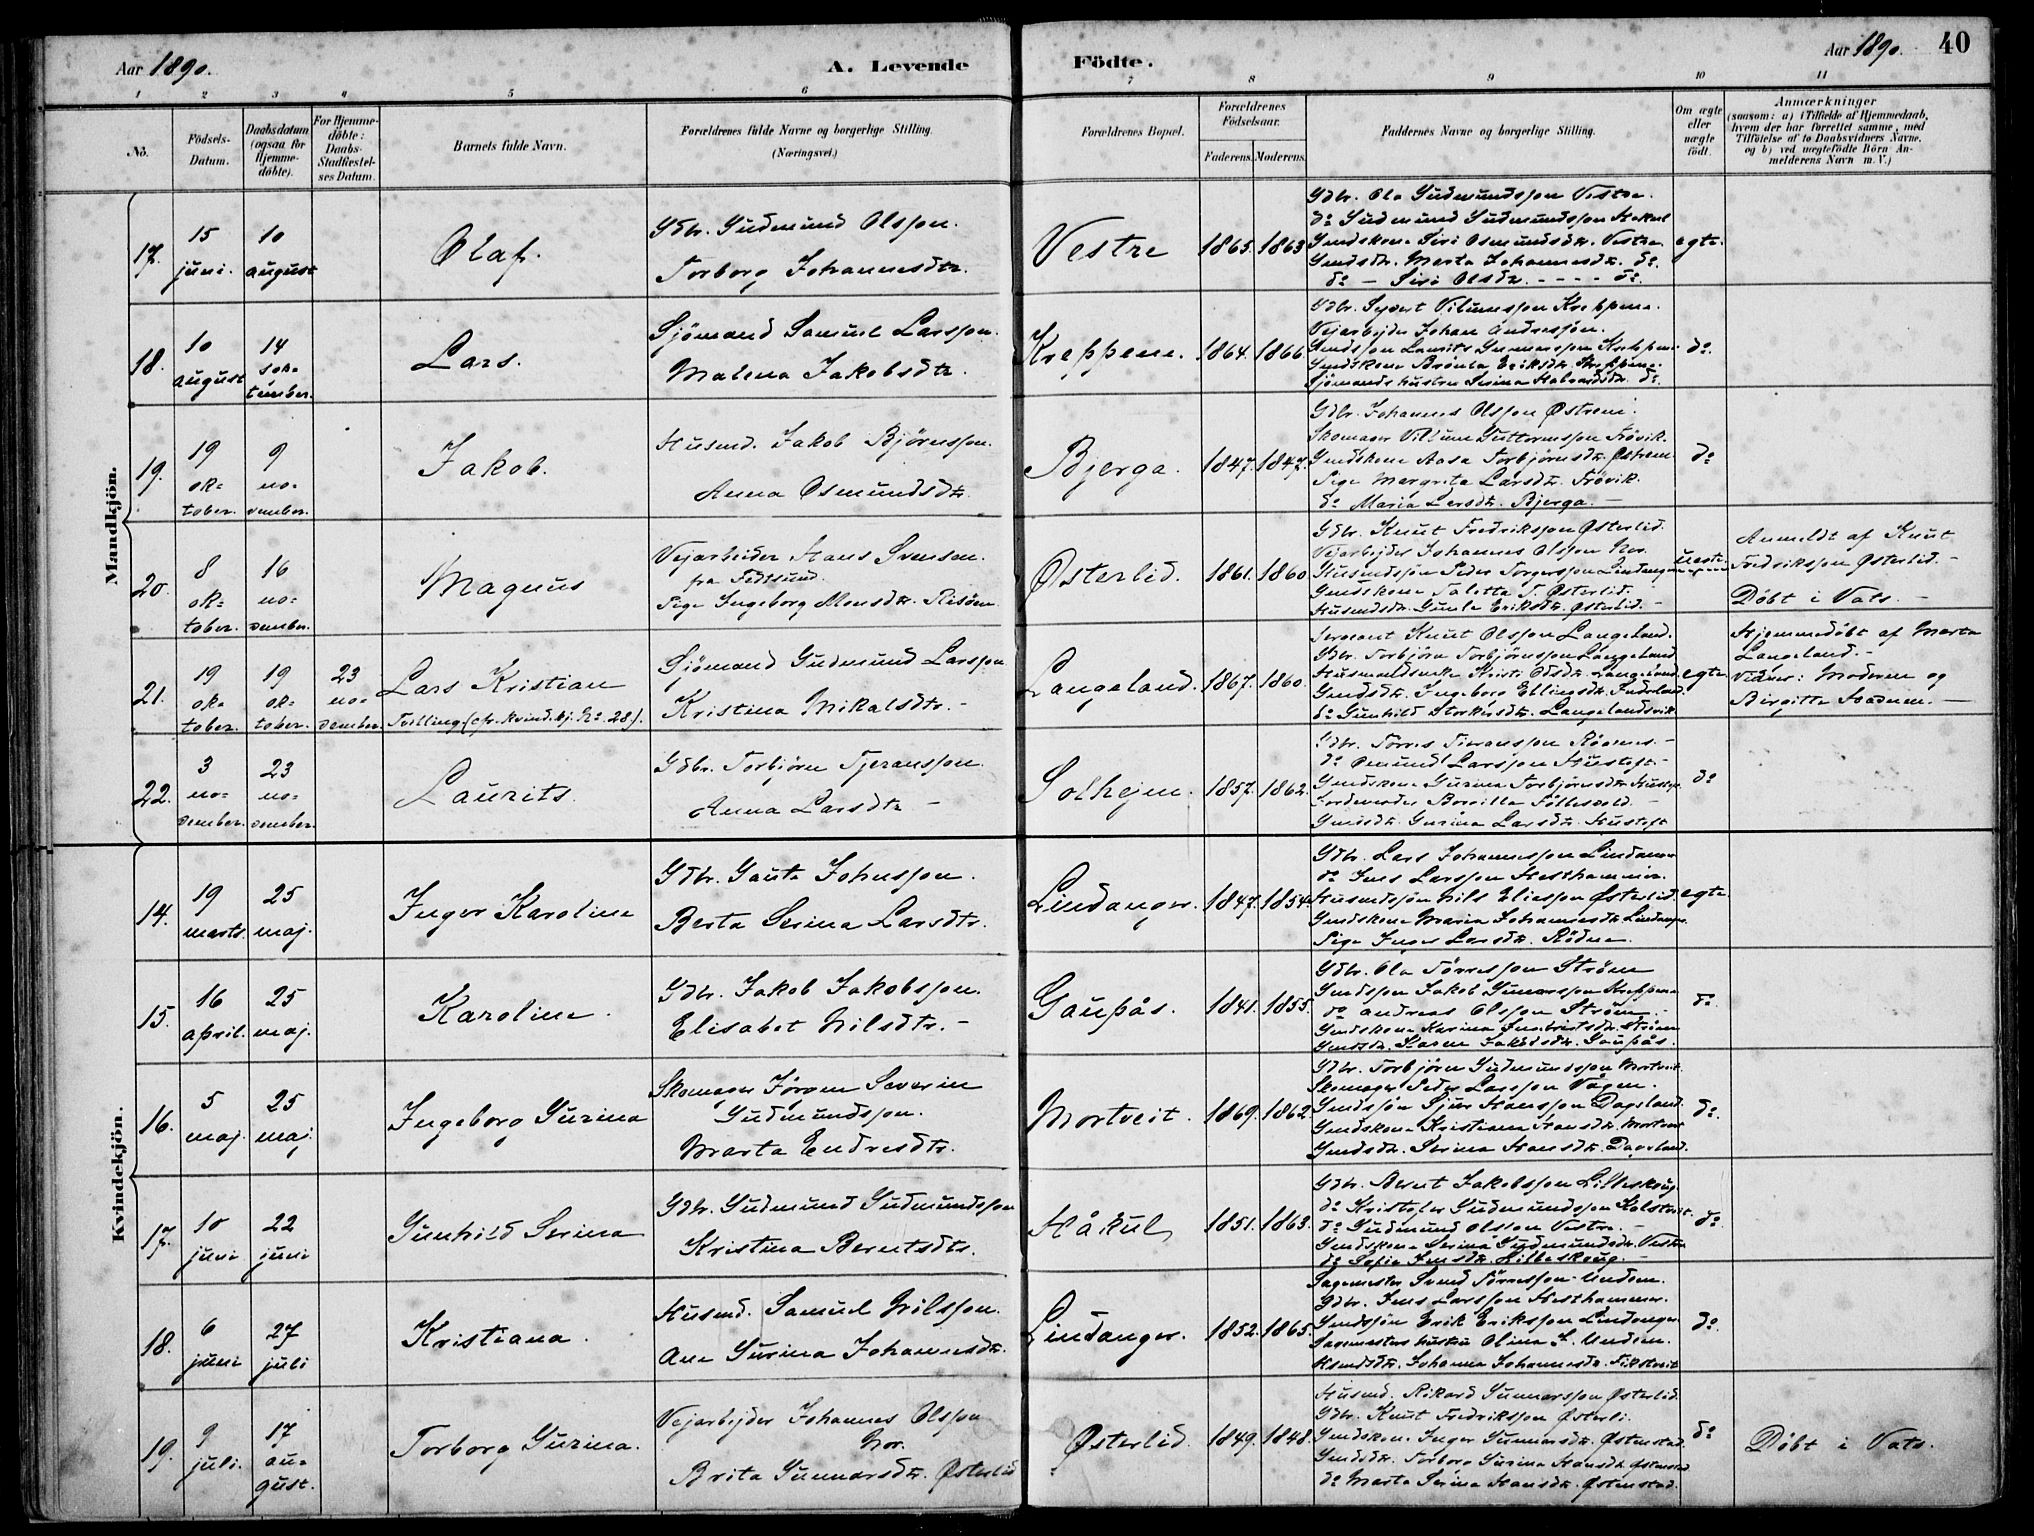 Aar 1890.
A. Levende
Födte.
Aar 1890.
40
1 2 3 4 5 6 7 8 9 10 11
No.
Födsels-Datum.
Daabsdatum (ogsaa for Hjemme-döbte).
For Hjemme-döbte: Daabs-Stadfæstel-ses Datum.
Barnets fulde Navn.
Forældrenes fulde Navne og borgerlige Stilling.
(Næringsvei.)
Forældrenes Bopæl.
Forældrenes Födselsaar.
Faderens. Moderens.
Faddernes Navne og borgerlige Stilling.
Om ægte eller uægte födt.
Anmærkninger
(saasom: a) i Tilfælde af Hjemmedaab, hvem der har forrettet samme, med Tilföielse af to Daabsvidners Navne, og b) ved uægtefödte Börn An-melderens Navn m. V.)
Mandkjön.
17. 15 juni. 10 august Olaf. Gdbr. Gudmund Olsson.
Torborg Johannesdtr. Vestre 1865. 1863
Gdbr. Ola Gudmundsson Vestre.
do Gudmund Gudmundsson Hakul
Gmdskone Siri Osmundsdtr. Vestre
Gmdsdtr. Marta Johannesdtr. do.
do - Siri Olsdtr. - - - - do.
egte.
18. 10 august 14 september. Lars. Sjömand Samuel Larsson.
Malena Jakobsdtr. Kreppene. 1864. 1866.
Gdbr. Syvert Vilumsson Kreppene.
Vejarbejder Johan Andressön.
Gmdssön Laurits Gunnarsson Kreppene
Gmdskone Brönla Eriksdtr. Kreppene
Sjömandshustru Serina Halvardsdtr. do.
do.
19. 19 oktober. 9 november. Jakob. Husmd. Jakob Björnsson.
Anna Osmundsdtr. Bjerga. 1847. 1847.
Gdbr. Johannes Olsson Östrem.
Skomager Villum Guttormsson Frövik.
Gmdskone Aasa Torbjörnsdtr. Östrem
Pige Margreta Larsdtr. Frövik.
do Maria Larsdtr. Bjerga. -
do
20. 8 oktober. 16 november. Magnus Vejarbeider Hans Svensen.
fra Fedtsund.
Pige Ingeborg Monsdtr. Risöen Østerlid. 1861. 1860
Gdbr. Knut Fredriksson Østerlid.
Vejarbejder Johannes Olsson Nor.
Husmdssön Peder Torgersson Lindanger
Gmdskone Taletta T. Østerlid.
Husmdsdtr. Gunla Eriksdtr. Østerlid. -
uegte
Anmeldt af Knut
Fredriksson Østerlid. -
Döbt i Vats. -
21. 19 oktober. 19 oktober. 23 november. Lars Kristian
Tvilling (cfr. kvindekj. No. 28).
Sjömand Gudmund Larsson
Kristina Mikalsdtr. - Langeland. 1867. 1860.
Sergeant Knut Olsson Langeland.
Gdbr. Torbjörn Torbjörnsson Langeland
Husmandsenke Kirsti Olsdtr. Langeland
Gmdsdtr. Ingeborg Ellingsdtr. Inderland
do Gunhild Storkersdtr. Langelandsvik
egte
Hjemmedöbt af Marta
Langeland. -
Vidner: Moderen og
Birgitte
22. 3 november. 23 november. Laurits. Gdbr. Torbjörn Tjeransson.
Anna Larsdtr. - Solhejm. 1857. 1862.
Gdbr. Torres Tjeransson Rödnes. -
do Omund Larsson Hustoft -
Gmdskone Gurina Torbjörnsdtr. Hustoft
Jordemoder Borvilla Föllesvold. -
Gmdsdtr. Gurina Larsdtr. Hustoft
do
Kvindekjön.
14. 19 marts. 25 maj. Inger Karoline Gdbr. Gaute Johnsson.
Berta Serina Larsdtr. Lindanger. 1847. 1854.
Gdbr. Lars Johannesson Lindanger
do Jens Larsson Hesthammer.
Husmdssön Nils Eliesson Østerlid
Gmdskone Maria Johannesdtr. Lindanger
Pige Inger Larsdtr. Rödne.
egte.
15. 16 april. 25 maj. Karoline. Gdbr. Jakob Jakobsson.
Elisabet Nilsdtr. - Gaupås. 1841. 1855.
Gdbr. Ola Törresson Ström
Gmdssön Jakob Gunnarsson Kreppene
do Andreas Olsson Ström. -
Gmdskone Karina Ingbrigtsdtr. Ström
Gmdsdtr. Karen Jakobsdtr. Gaupås.
do
16. 5 maj. 25 maj. Ingeborg Gurina Skomager Jörgen Severin
Gudmundsson.
Marta Endresdtr. Mortveit. 1869. 1862
Gdbr. Torbjörn Gudmundsson Mortveit
Skomager Peder Larsson Vågen.
Gmdssön Sjur Hansson Dagsland.
Gmdskone Kristiana Hansdtr. Mortveit
Gmdsdtr. Serina Hansdtr. Dagsland.
do.
17. 10 juni 22 juni Gunhild Serina Gdbr. Gudmund Gudmundsson
Kristina Berntsdtr. Håkul 1851. 1863.
Gdbr. Bernt Jakobsson Lilleskoug.
do Kristofer Gudmundsson Kolstveit
do Gudmund Olsson Vestre. -
Gmdskone Serina Gudmundsdtr. Vestre
do Sofie Jensdtr. Lilleskoug. -
do
18. 6 juni 27 juli Kristiana. Husmd. Samuel Nilsson.
Ane Gurina Johannesdtr. Lindanger. 1852. 1865.
Sagmester Svend Törresson Undem.
Gdbr. Jens Larsson Hesthammer.
Gmdssön Erik Eriksson Lindanger
Sagmesters hustru Oline L. Undem.
Husmdsdtr. Johanna Johannesdtr. Fikstveit
do.
19. 9 juli. 17 august. Torborg Gurina. Vejarbejder Johannes Olsson
Nor.
Brita Gunnarsdtr. Østerlid Østerlid. 1849. 1848.
Husmd. Rikard Gunnarsson Østerlid.
Gdbr. Knut Fredriksson Østerli.
Gmdskone Inger Gunnarsdtr. Østenstad
Gmdsdtr. Torborg Gurina Hansdtr. Østenstad
do Marta Serina Hansdtr. Østenstad.
do
Döbt i Vats.